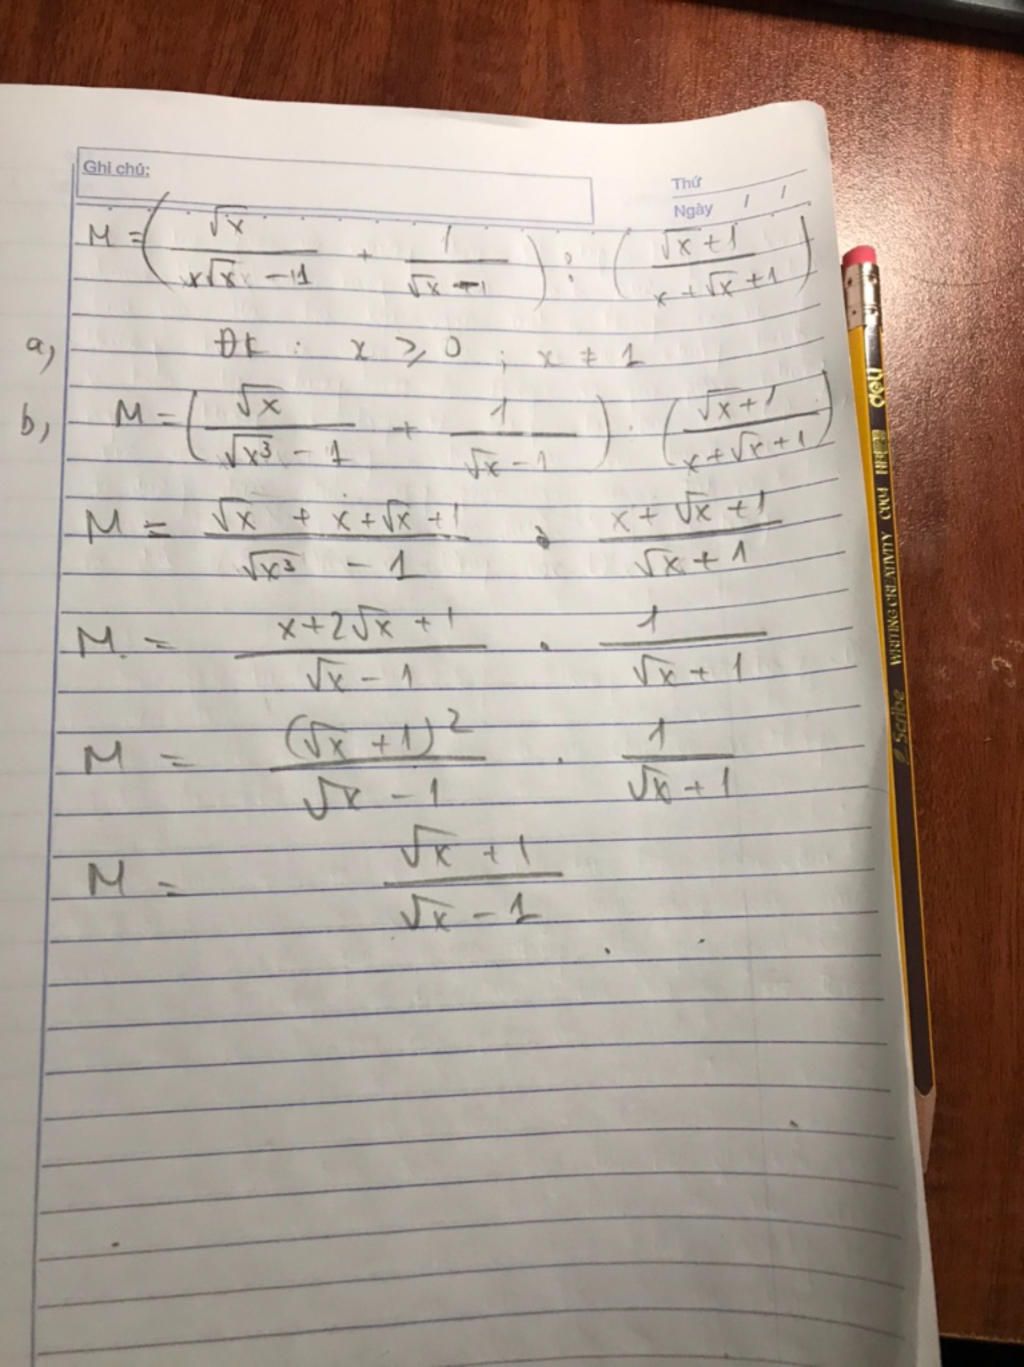 Ghi chú:
Thứ
Ngày / /
M = (√x / (x√x - 1) + 1 / (√x - 1)) : ((√x + 1) / (x + √x + 1))
a, ĐK : x ⩾ 0 ; x ≠ 1
b, M = (√x / (√x³ - 1) + 1 / (√x - 1)) : ((√x + 1) / (x + √x + 1))
M = (√x + x + √x + 1) / (√x³ - 1) . (x + √x + 1) / (√x + 1)
M = (x + 2√x + 1) / (√x - 1) . 1 / (√x + 1)
M = (√x + 1)² / (√x - 1) . 1 / (√x + 1)
M = (√x + 1) / (√x - 1)
deli
Scribe WRITING CREATIVITY